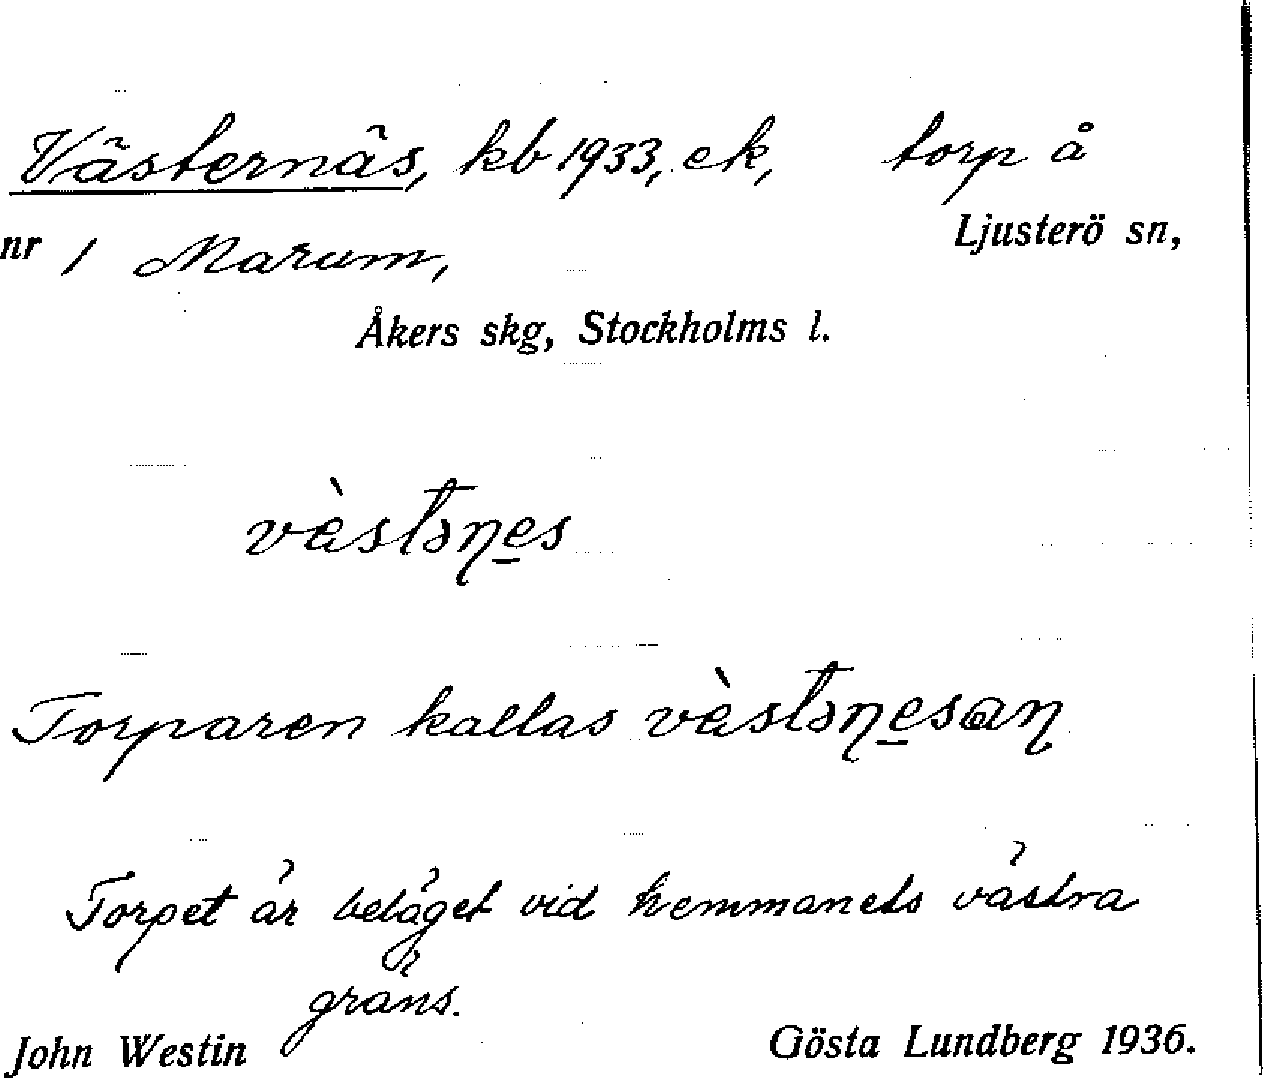 Västernäs, kb 1933, ek, torp å
Ljusterö sn,
nr 1 Marum,
Åkers skg, Stockholms l.
vὲstəɳes
Torparen kallas vὲstəɳesaɳ
Torpet är beläget vid hemmanets västra
gräns.
John Westin Gösta Lundberg 1936.